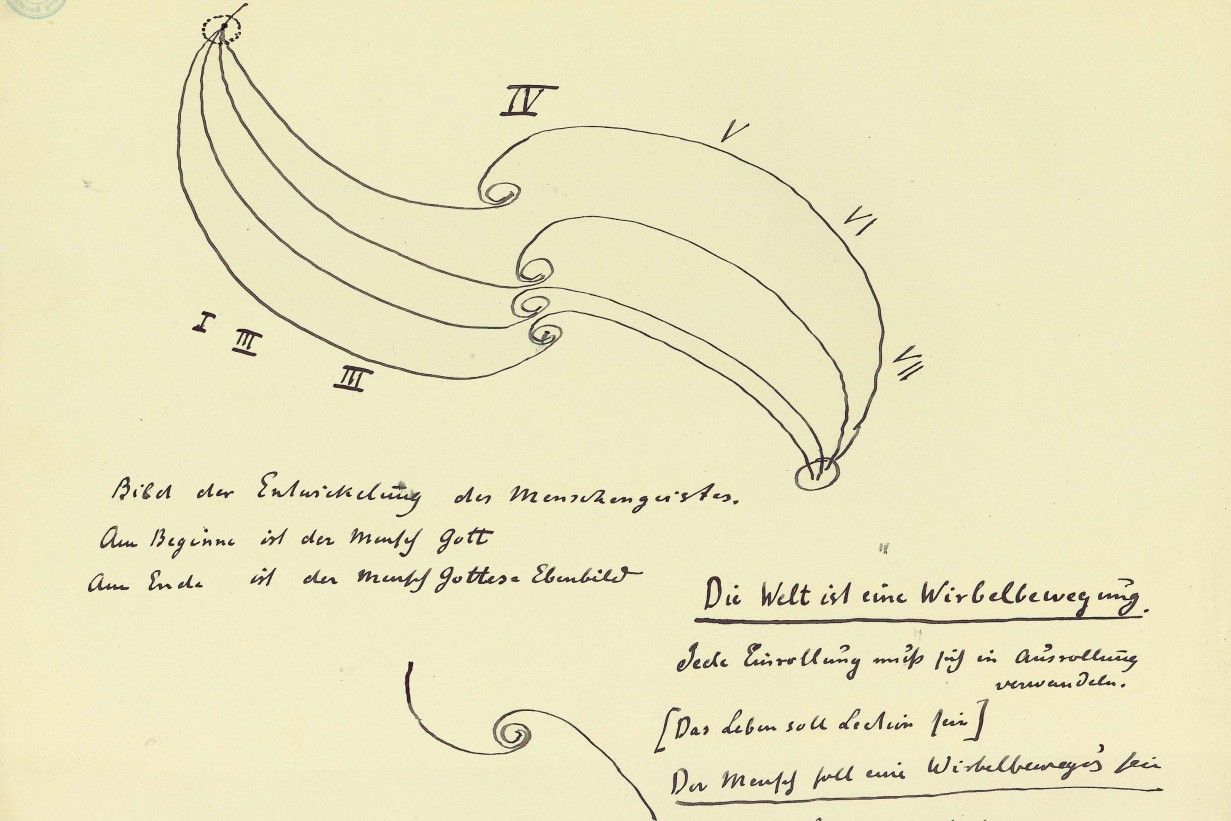 IV
V
VI
VII
I III
III
Bild der Entwickelung des Menschengeistes.
Am Beginne ist der Mensch Gott
Am Ende ist der Mensch Gottes Ebenbild
Die Welt ist eine Wirbelbewegung.
Jede Einrollung muß sich in Ausrollung
verwandeln.
[Das Leben soll Lection sein]
Der Mensch soll eine Wirbelbewegg sein